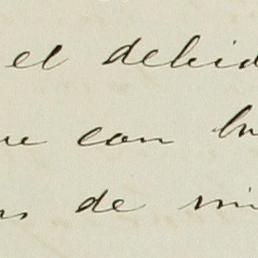 el debid
ue con bu
os de mi